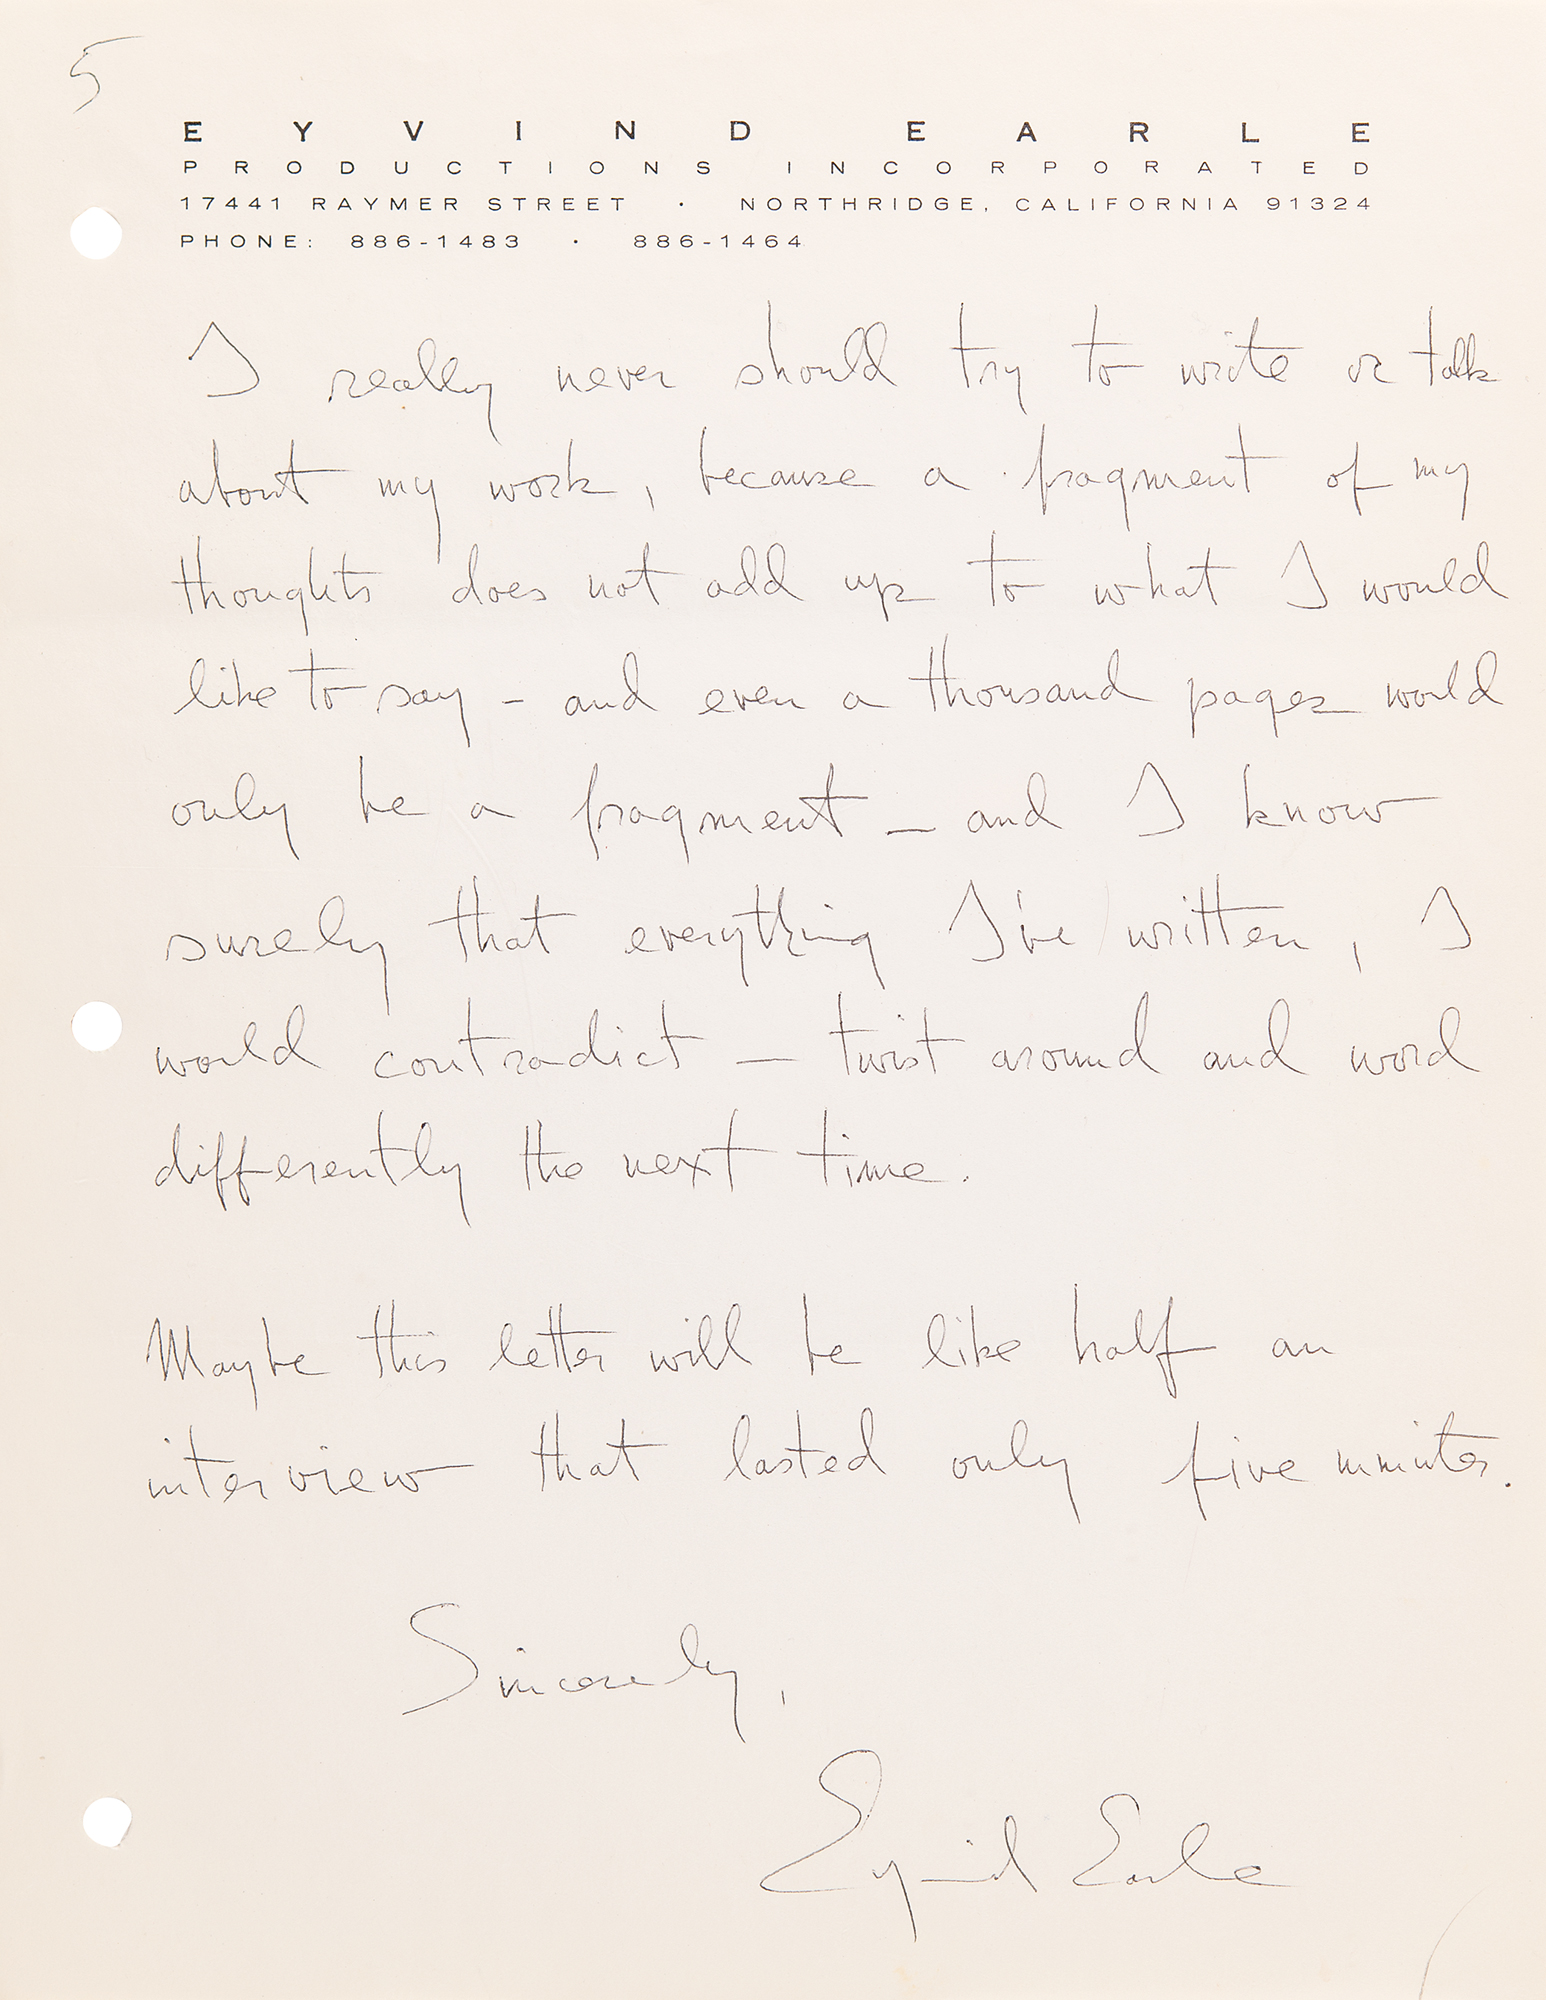 5
EYVIND EARLE
PRODUCTIONS INCORPORATED
17441 RAYMER STREET · NORTHRIDGE, CALIFORNIA 91324
PHONE: 886-1483 · 886-1464
I really never should try to write or talk
about my work, because a fragment of my
thoughts does not add up to what I would
like to say – and even a thousand pages would
only be a fragment – and I know
surely that everything I've written, I
would contradict – twist around and word
differently the next time.
Maybe this letter will be like half an
interview that lasted only five minutes.
Sincerely,
Eyvind Earle